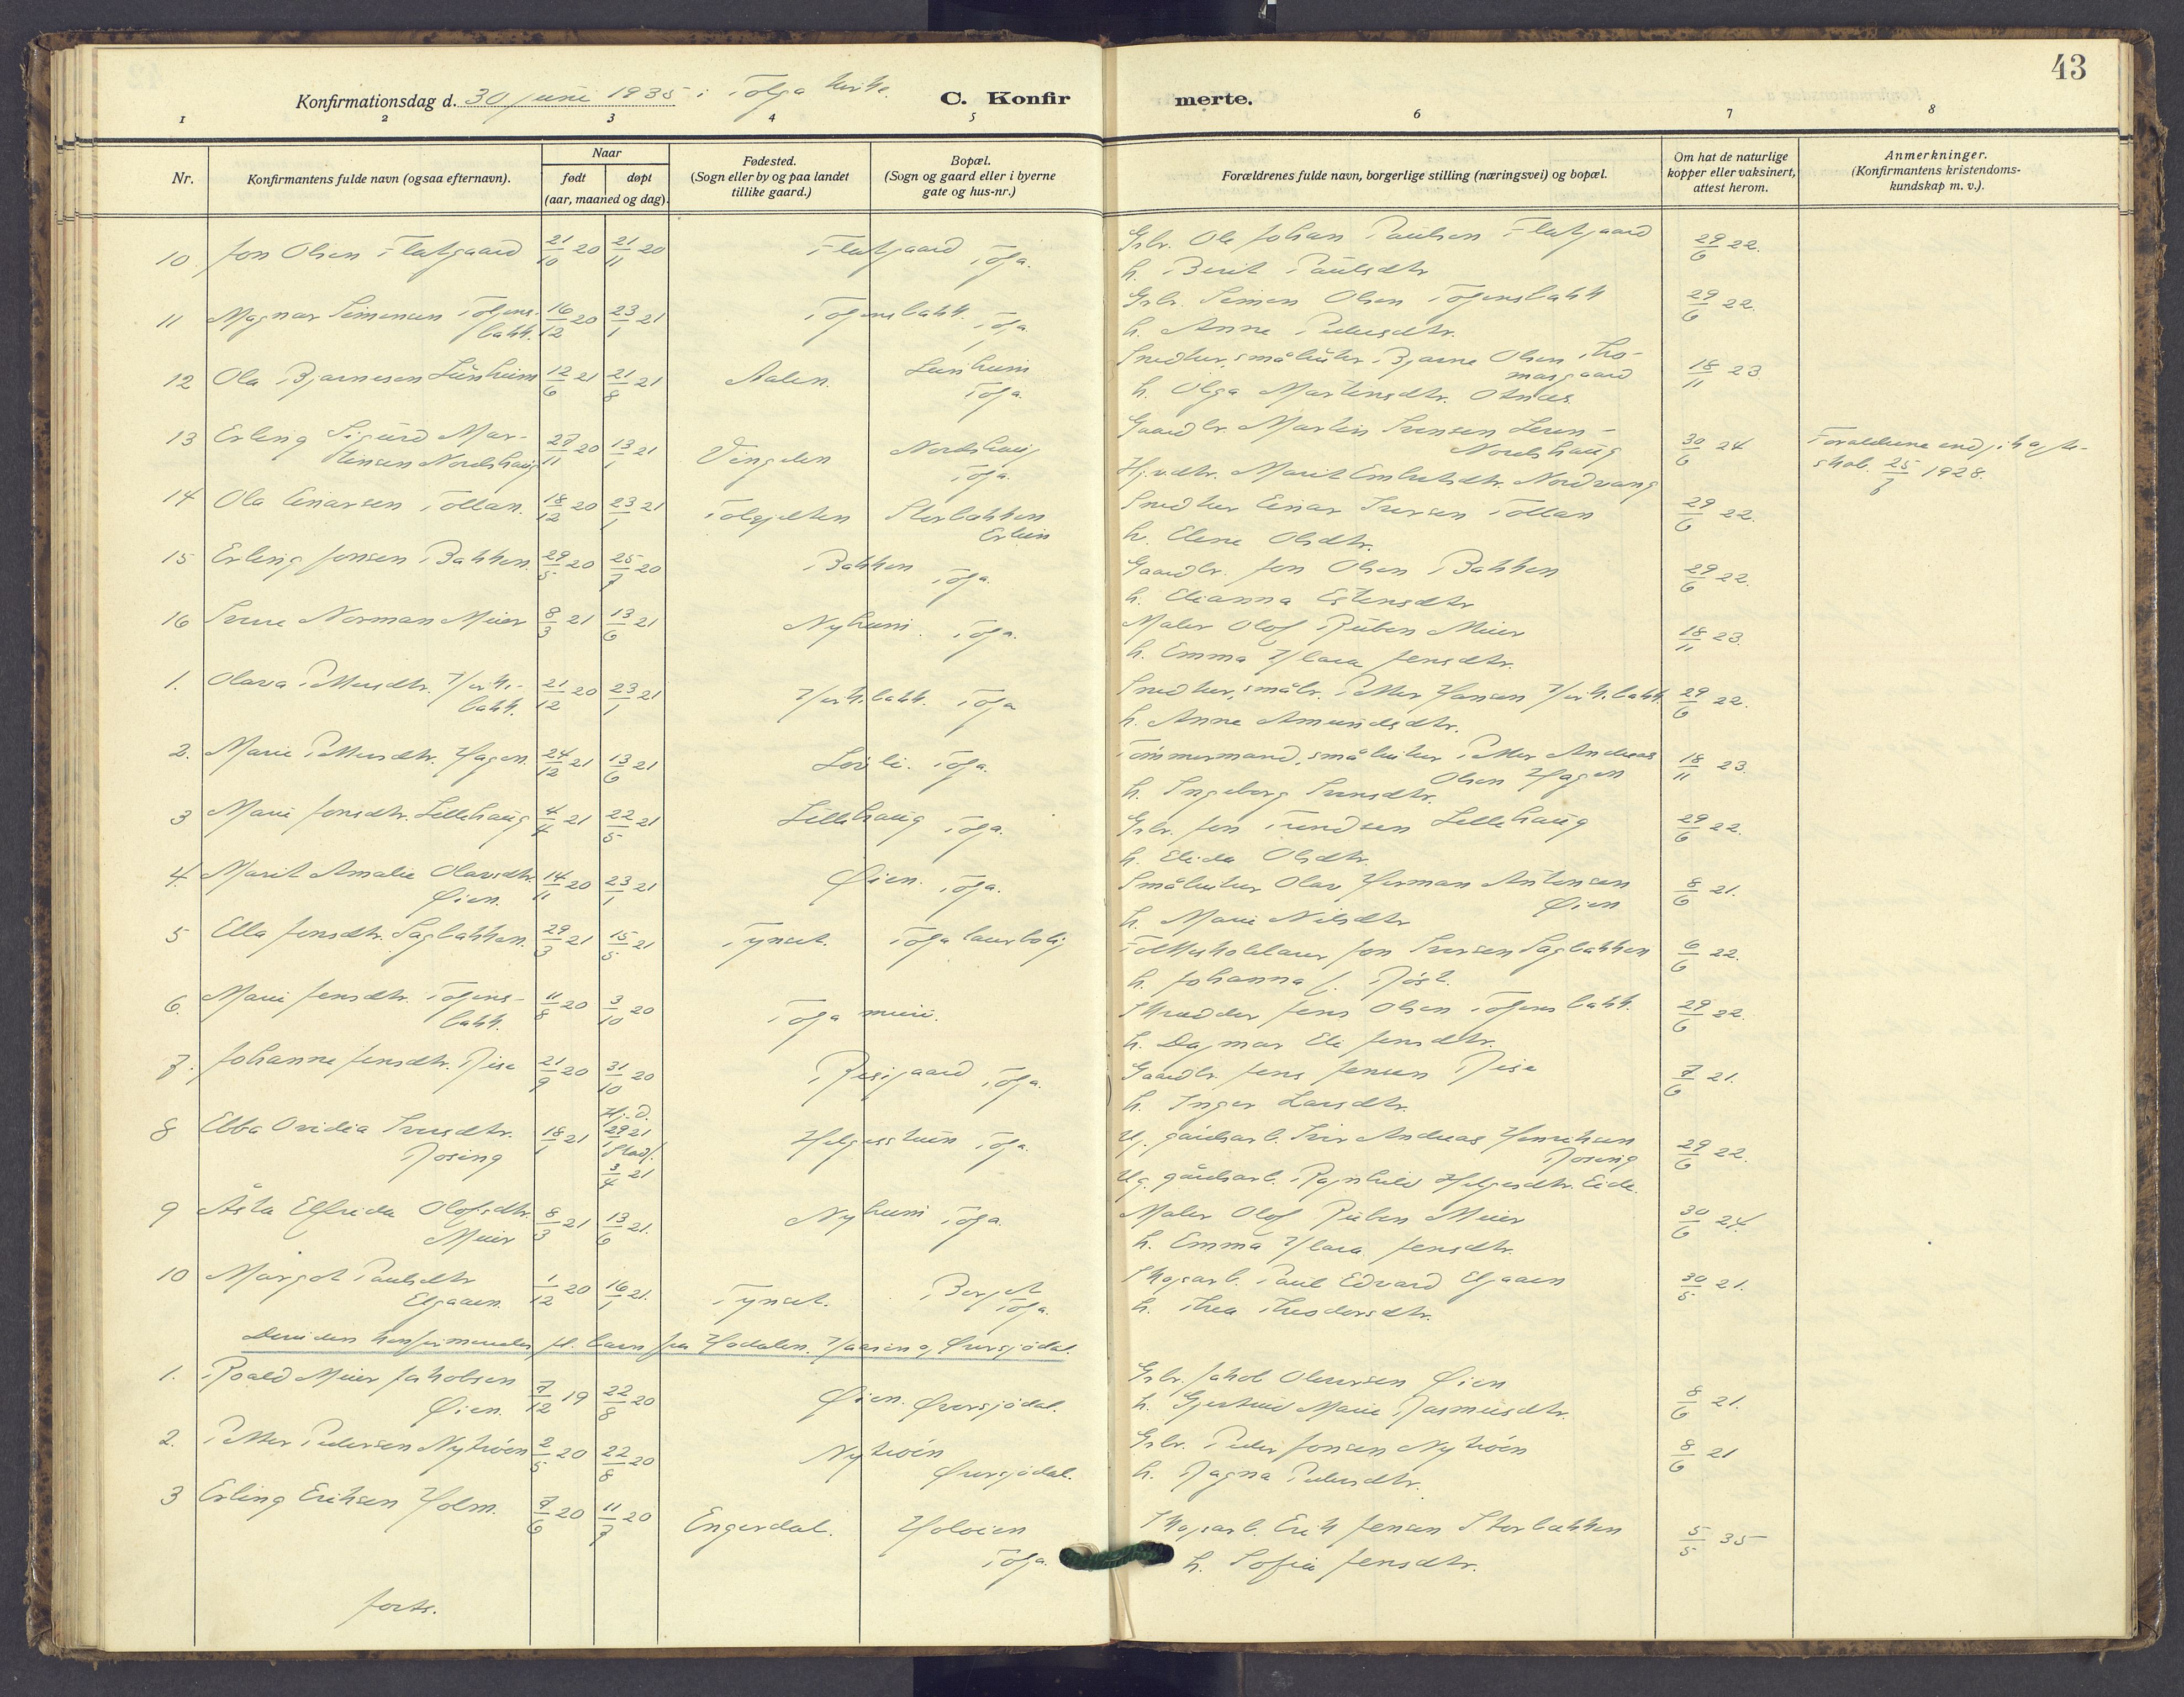 43
Konfirmationsdag d. 30 juni 1935 i Tolga kirke.
C. Konfirmerte.
1 2 3 4 5 6 7 8
Nr.
Konfirmantens fulde navn (ogsaa efternavn).
Naar
født døpt
(aar, maaned og dag).
Fødested.
(Sogn eller by og paa landet
tillike gaard.)
Bopæl.
(Sogn og gaard eller i byerne
gate og hus-nr.)
Forældrenes fulde navn, borgerlige stilling (næringsvei) og bopæl.
Om hat de naturlige
kopper eller vaksinert,
attest herom.
Anmerkninger.
(Konfirmantens kristendoms-
kundskap m. v.).
10 Jon Olsen Flatgaard 21/10 20 21/11 20 Flatgaard Tolga. Grbr. Ole Johan Paulsen Flatgaard 29/6 22.
h. Berit Paulsdtr
11 Magnar Simensen Tolgens- 16/12 20 23/1 21 Tolgensbakk. Tolga. Grbr. Simen Olsen Tolgensbakk 29/6 22.
bakk. h. Anne Pedersdtr.
12 Ola Bjarnesen Lunheim 12/6 21 21/8 21 Aalen. Lunheim Snedker, småbruker Bjarne Olsen Tho- 18/11 23.
Tolga. masgaard
h. Olga Martensdtr. Otnes.
13 Erling Sigurd Mar- 27/11 20 13/1 21 Vingelen Nordshaug Gaardbr. Martin Iversen 30/6 24
tinsen Nordshaug Tolga. Nordshaug
Marit Embretsdtr. Nordvang
Forældrene indgik egte-
skab. 25/6 1928.
14 Ola Einarsen Tollan. 18/12 20 23/1 21 Storbakken Snedker Einar Iversen Tollan 29/6 22.
h. Elene Olsdtr.
15 Erling Jonsen Bakken. 29/5 20 25/7 20 Bakken Tolga. Gaardbr. Jon Olsen Bakken 29/6 22.
h. Elianna Estensdtr
16 Sverre Norman Meier 8/3 21 13/6 21 Nyheim. Tolga. Maler Olof Ruben Meier 18/11 23.
h. Emma Klara Jensdtr.
1. Olava Pettersdtr. Kirke- 21/12 20 23/1 21 Kirkebakk. Tolga Snedker, småbr. Petter Hansen Kirkebakk. 29/6 22.
bakk. h. Anne Amundsdtr.
2. Marie Pettersdtr. Hagen. 24/12 21 13/6 21 Lövli. Tolga. Tömmermand, småbruker Petter Andreas 18/11 23.
Olsen Hagen
h. Ingeborg Iversdtr.
3 Marie Jonsdtr. Lillehaug 4/4 21 22/5 21 Lillehaug Tolga. Grbr. Jon Trondsen Lillehaug 29/6 22.
h. Elida Olsdtr.
4. Marit Amalie Olavsdtr. 14/11 20 23/1 21 Øien. Tolga. Småbruker Olav Herman Antonsen 8/6 21.
Øien. Øien
h. Marie Nilsdtr
5 Ella Jonsdtr. Sagbakken. 29/3 21 15/5 21 Tynset. Tolga lærerbolig Folkeskolelærer Jon Iversen Sagbakken 6/6 22.
h. Johanna J. Röst.
6. Marie Jensdtr. Tolgens- 11/8 20 3/10 20 Tolga meieri. Skrædder Jens Olsen Tolgensbakk. 29/6 22.
bakk. h. Dagmar Eli Jensdtr.
7. Johanne Jensdtr. Rise 21/9 20 31/10 20 Risegaard Tolga. Gaardbr. Jens Jensen Rise 7/6 21.
h. Inger Larsdtr.
8 Ebba Ovidia Iversdtr. 18/1 21 Hj. d. 29/1 21 Tolga. Ug. gårdsarb. Iver Andreas Henriksen 29/6 22.
Rosing Stadf. 3/4 21 Rosing
Ug. gårdsarb. Ragnhild Helgesdtr. Eide.
9 Åsta Elfrida Olofsdtr. 8/3 21 13/6 21. Nyheim Tolga. Maler Olof Ruben Meier 30/6 24.
Meier h. Emma Klara Jensdtr.
10 Margot Paulsdtr 1/12 20 16/1 21. Tynset. Borget Skogsarb. Paul Edvard Elgaaen 30/5 21.
Elgaaen. Tolga. h. Thea Theodorsdtr.
Desuden konfirmertes fl. barn fra Hodalen. Haaen og Øversjödal.
1. Roald Meier Jakobsen 7/12 19 22/8 20 Øien. Øversjödal. Grbr. Jakob Olaussen Øien 8/6 21.
Øien. h. Gjertrud Marie Rasmusdtr.
2. Petter Pedersen Nytröen 2/5 20 22/8 20 Nytröen Grbr. Peder Jonsen Nytröen 8/6 21
Øversjödal. h. Ragna Pedersdtr.
3 Erling Eriksen Holm. 7/6 20 11/7 20 Engerdal. Holöien Skogsarb. Erik Jensen Storbakken 5/5 35
Tolga. h. Sofie Jensdtr.
forts.